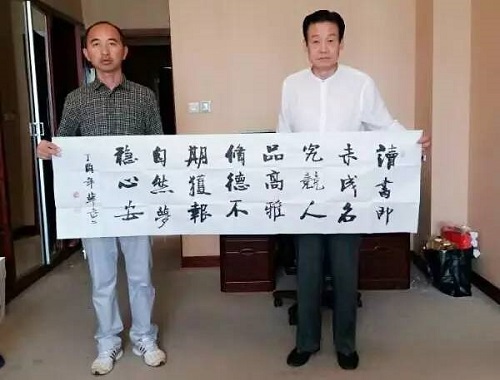 讀書即
未成名
究競人
品高雅
脩德不
期獲報
自然夢
穩心安
丁酉年